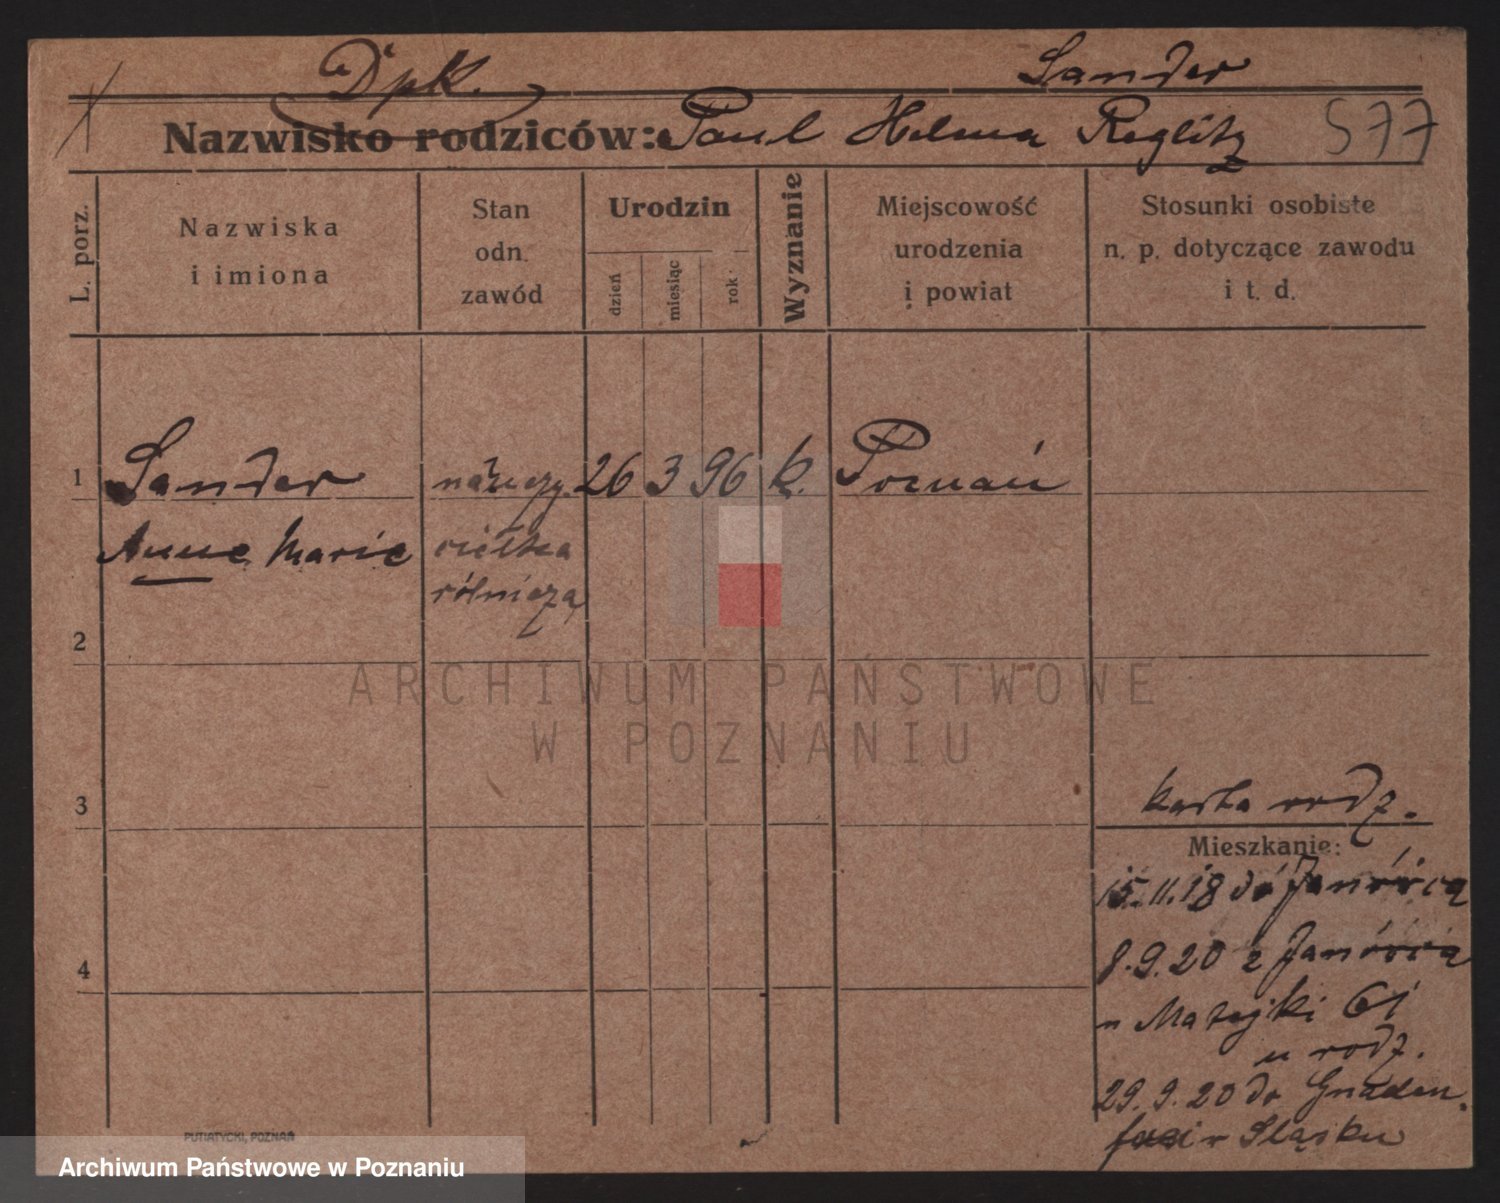 Dpk.
Sander
Nazwisko rodziców: Paul Helena Reglitz 577
L. porz.
Nazwiska
i imiona
Stan
odn.
zawód
Urodzin
dzień
miesiąc
rok
Wyznanie
Miejscowość
urodzenia
i powiat
Stosunki osobiste
n. p. dotyczące zawodu
i t. d.
1 Sander nauczy- 26 3 96 k. Poznań
Anne Marie cielka
rólnicza
2
ARCHIWUM PAŃSTWOWE
W POZNANIU
3 karta rodz.
Mieszkanie:
15.11.18 do Janówca
8.9.20 z Janówca
n Matejki 61
u rodz.
4
29.9.20 do Gnaden-
Śląsku
PUTIATYCKI, POZNAŃ
Archiwum Państwowe w Poznaniu